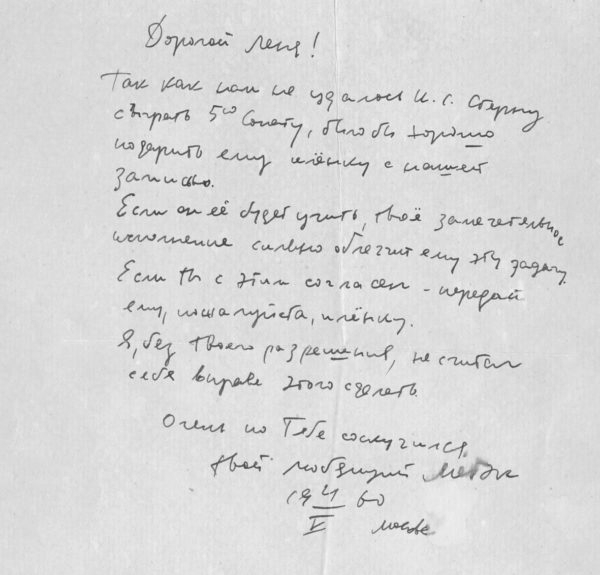 Дорогой Леня!
Так как нам не удалось И. С. Стерну
сыграть 5ую Сонату, было бы хорошо
подарить ему плёнку с нашей
записью.
Если он её будет учить, твоё замечательное
исполнение сильно облегчит ему эту задачу.
Если ты с этим согласен - передай
ему, пожалуйста, плёнку.
Я, без твоего разрешения, не считал
себя вправе этого сделать.
Очень по Тебе соскучился
твой любящий
V 60
Москва